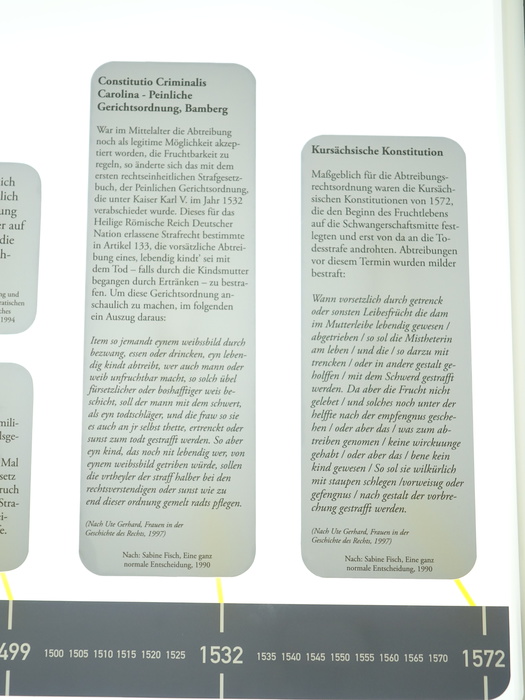 ich
lich
ung
r auf
die
h-
ng und
ratischen
ches
1994
mili-
lsge-
Mal
setz
ruch
Stra-
i-
e.
Constitutio Criminalis
Carolina - Peinliche
Gerichtsordnung, Bamberg
War im Mittelalter die Abtreibung
noch als legitime Möglichkeit akzep-
tiert worden, die Fruchtbarkeit zu
regeln, so änderte sich das mit dem
ersten rechtseinheitlichen Strafgesetz-
buch, der Peinlichen Gerichtsordnung,
die unter Kaiser Karl V. im Jahr 1532
verabschiedet wurde. Dieses für das
Heilige Römische Reich Deutscher
Nation erlassene Strafrecht bestimmte
in Artikel 133, die vorsätzliche Abtrei-
bung eines‚ lebendig kindt' sei mit
dem Tod – falls durch die Kindsmutter
begangen durch Ertränken – zu bestra-
fen. Um diese Gerichtsordnung an-
schaulich zu machen, im folgenden
ein Auszug daraus:
Item so jemandt eynem weibsbild durch
bezwang, essen oder drincken, eyn leben-
dig kindt abtreibt, wer auch mann oder
weib unfruchtbar macht, so solch übel
fürsetzlicher oder boshafftiger weis be-
schicht, soll der mann mit dem schwert,
als eyn todtschläger, und die fraw so sie
es auch an jr selbst thette, ertrenckt oder
sunst zum todt gestrafft werden. So aber
eyn kind, das noch nit lebendig wer, von
eynem weibsbild getriben würde, sollen
die vrtheyler der straff halber bei den
rechtsverstendigen oder sunst wie zu
end dieser ordnung gemelt radts pflegen.
(Nach Ute Gerhard, Frauen in der
Geschichte des Rechts, 1997)
Nach: Sabine Fisch, Eine ganz
normale Entscheidung, 1990
Kursächsische Konstitution
Maßgeblich für die Abtreibungs-
rechtsordnung waren die Kursäch-
sischen Konstitutionen von 1572,
die den Beginn des Fruchtlebens
auf die Schwangerschaftsmitte fest-
legten und erst von da an die To-
desstrafe androhten. Abtreibungen
vor diesem Termin wurden milder
bestraft:
Wann vorsetzlich durch getrenck
oder sonsten Leibesfrücht die dam
im Mutterleibe lebendig gewesen /
abgetrieben / so sol die Mistheterin
am leben / und die / so darzu mit
trencken / oder in andere gestalt ge-
holffen / mit dem Schwerd gestrafft
werden. Da aber die Frucht nicht
gelebet / und solches noch unter der
helffte nach der empfengnus gesche-
hen / oder aber das / was zum ab-
treiben genomen / keine wirckuunge
gehabt / oder aber das / bene kein
kind gewesen / So sol sie wilkürlich
mit staupen schlegen /vorweisug oder
gefengnus / nach gestalt der vorbre-
chung gestrafft werden.
(Nach Ute Gerhard, Frauen in der
Geschichte des Rechts, 1997)
Nach: Sabine Fisch, Eine ganz
normale Entscheidung, 1990
499 1500 1505 1510 1515 1520 1525 1532 1535 1540 1545 1550 1555 1560 1565 1570 1572